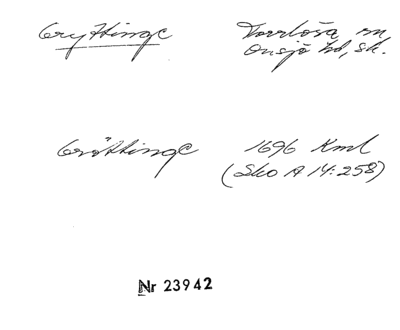 Gryttinge Torrlösa sn,
Onsjö hd, sk.
Gröttinge 1696 Kml
(Sko A 14:258)
Nr 23942